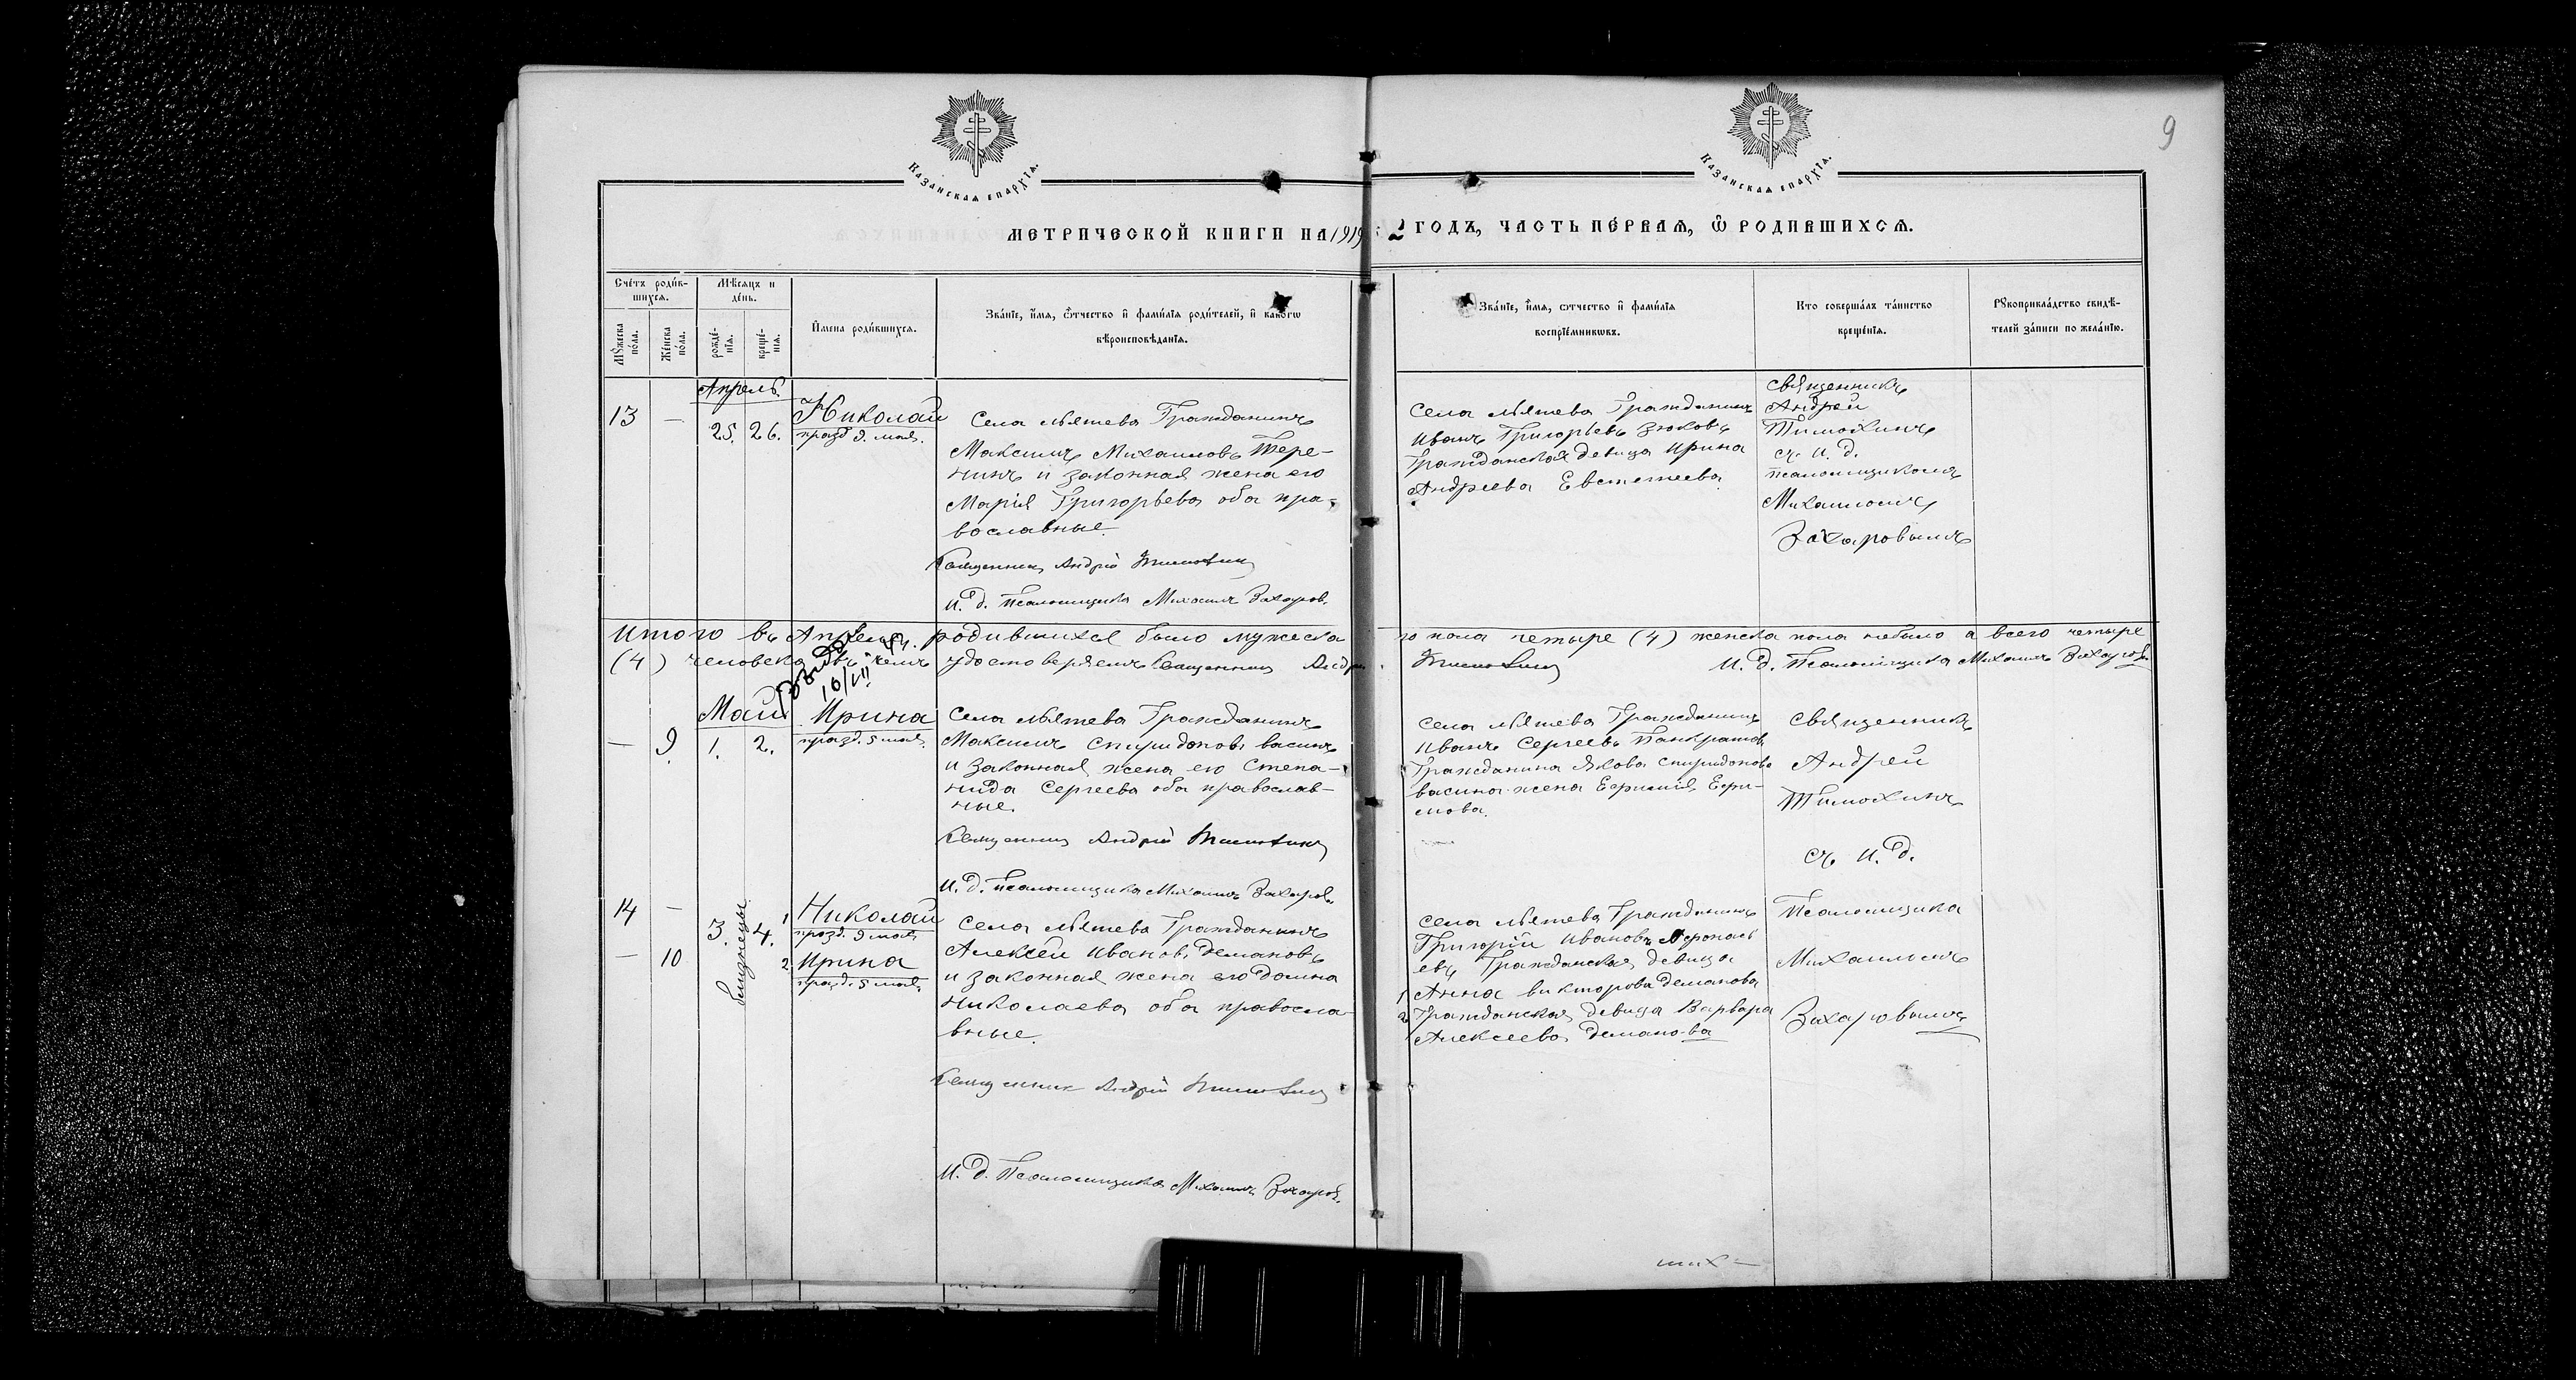 9
Казанская епархїѧ.
Казанская епархїѧ.
МЕТРИЧЕСКОЙ КНИГИ НА 1919 ГОДЪ, ЧАСТЬ ПЕ́РВАѦ, Ѽ РОДИВШИХСѦ.
Сче́тъ роди́в-
шихсѧ.
Мѣ́сѧцъ и
де́нь.
Мꙋжеска по́ла.
Же́нска по́ла.
рожде́-
нїѧ.
креще́-
нїѧ.
И҆мена роди́вшихсѧ.
Зва́нїе, и҆́мѧ, ѻ҆́тчество и҆ фами́лїѧ роди́телей, и҆ како́гѡ
вѣроисповѣ́данїѧ.
Зва́нїе, и҆́мѧ, ѻтчество и҆ фами́лїѧ
воспрїе́мниковъ.
Кто совершáлъ та́инство
креще́нїѧ.
Рꙋкоприкла́дство свидѣ́-
телей за́писи по жела́нїю.
Апрель
13 — 25. 26. Николай
празд 9. мая.
Села Гражданинъ
Максимъ Михаиловъ Тере-
нинъ и законная жена его
Марія Григорьева оба пра-
вославные.
Священникъ Андрей Тимохинъ
И. д. Псаломщика Михаилъ Захаров.
Села Гражданинъ
Иванъ Григорьевъ Зюковъ
Гражданская девица Ирина
Андреева Евстегнеева
Священникъ
Андрей
Тимохинъ
съ И. д.
псаломщикомъ
Михаиломъ
Захаровымъ
Итого въ Апреле родившихся было мужеска
го пола четыре (4) женска пола небыло а всего четыре
(4) человека въ чемъ удостоверяемъ Священникъ Андрей
Тимохинъ И. д. Псаломщика Михаилъ Захаровъ
10/VII
Май
— 9. 1. 2. Ирина
празд. 5 мая.
Села Гражданинъ
Максимъ Спиридоновъ Васинъ
и законная жена его Степа-
нида Сергеева оба православ-
ные.
Священникъ Андрей Тимохинъ
И. д. Псаломщика Михаилъ Захаровъ
Села Гражданинъ
Иванъ Сергеевъ Панкратовъ
Гражданина Якова Спиридонова
Васина жена Ефимия Ефи-
мова.
Священникъ
Андрей
Тимохинъ
съ И. д.
14 — 3. 4. 1 Николай
празд. 9 мая
— 10 2 Ирина
празд. 5 мая
близнецы
Села Гражданинъ
Алексей Ивановъ Демановъ
и законная жена его Домна
Николаева оба правосла-
вные.
Священник Андрей Тимохинъ
И. д. Псаломщика Михаилъ Захаров.
Села Гражданинъ
Григорій Ивановъ Афонась
евъ Гражданская девица
1 Анна Викторова Деманова
2 Гражданская девица Варвара
Алексеева Деманова
Псаломщика
Михаиломъ
Захаровымъ